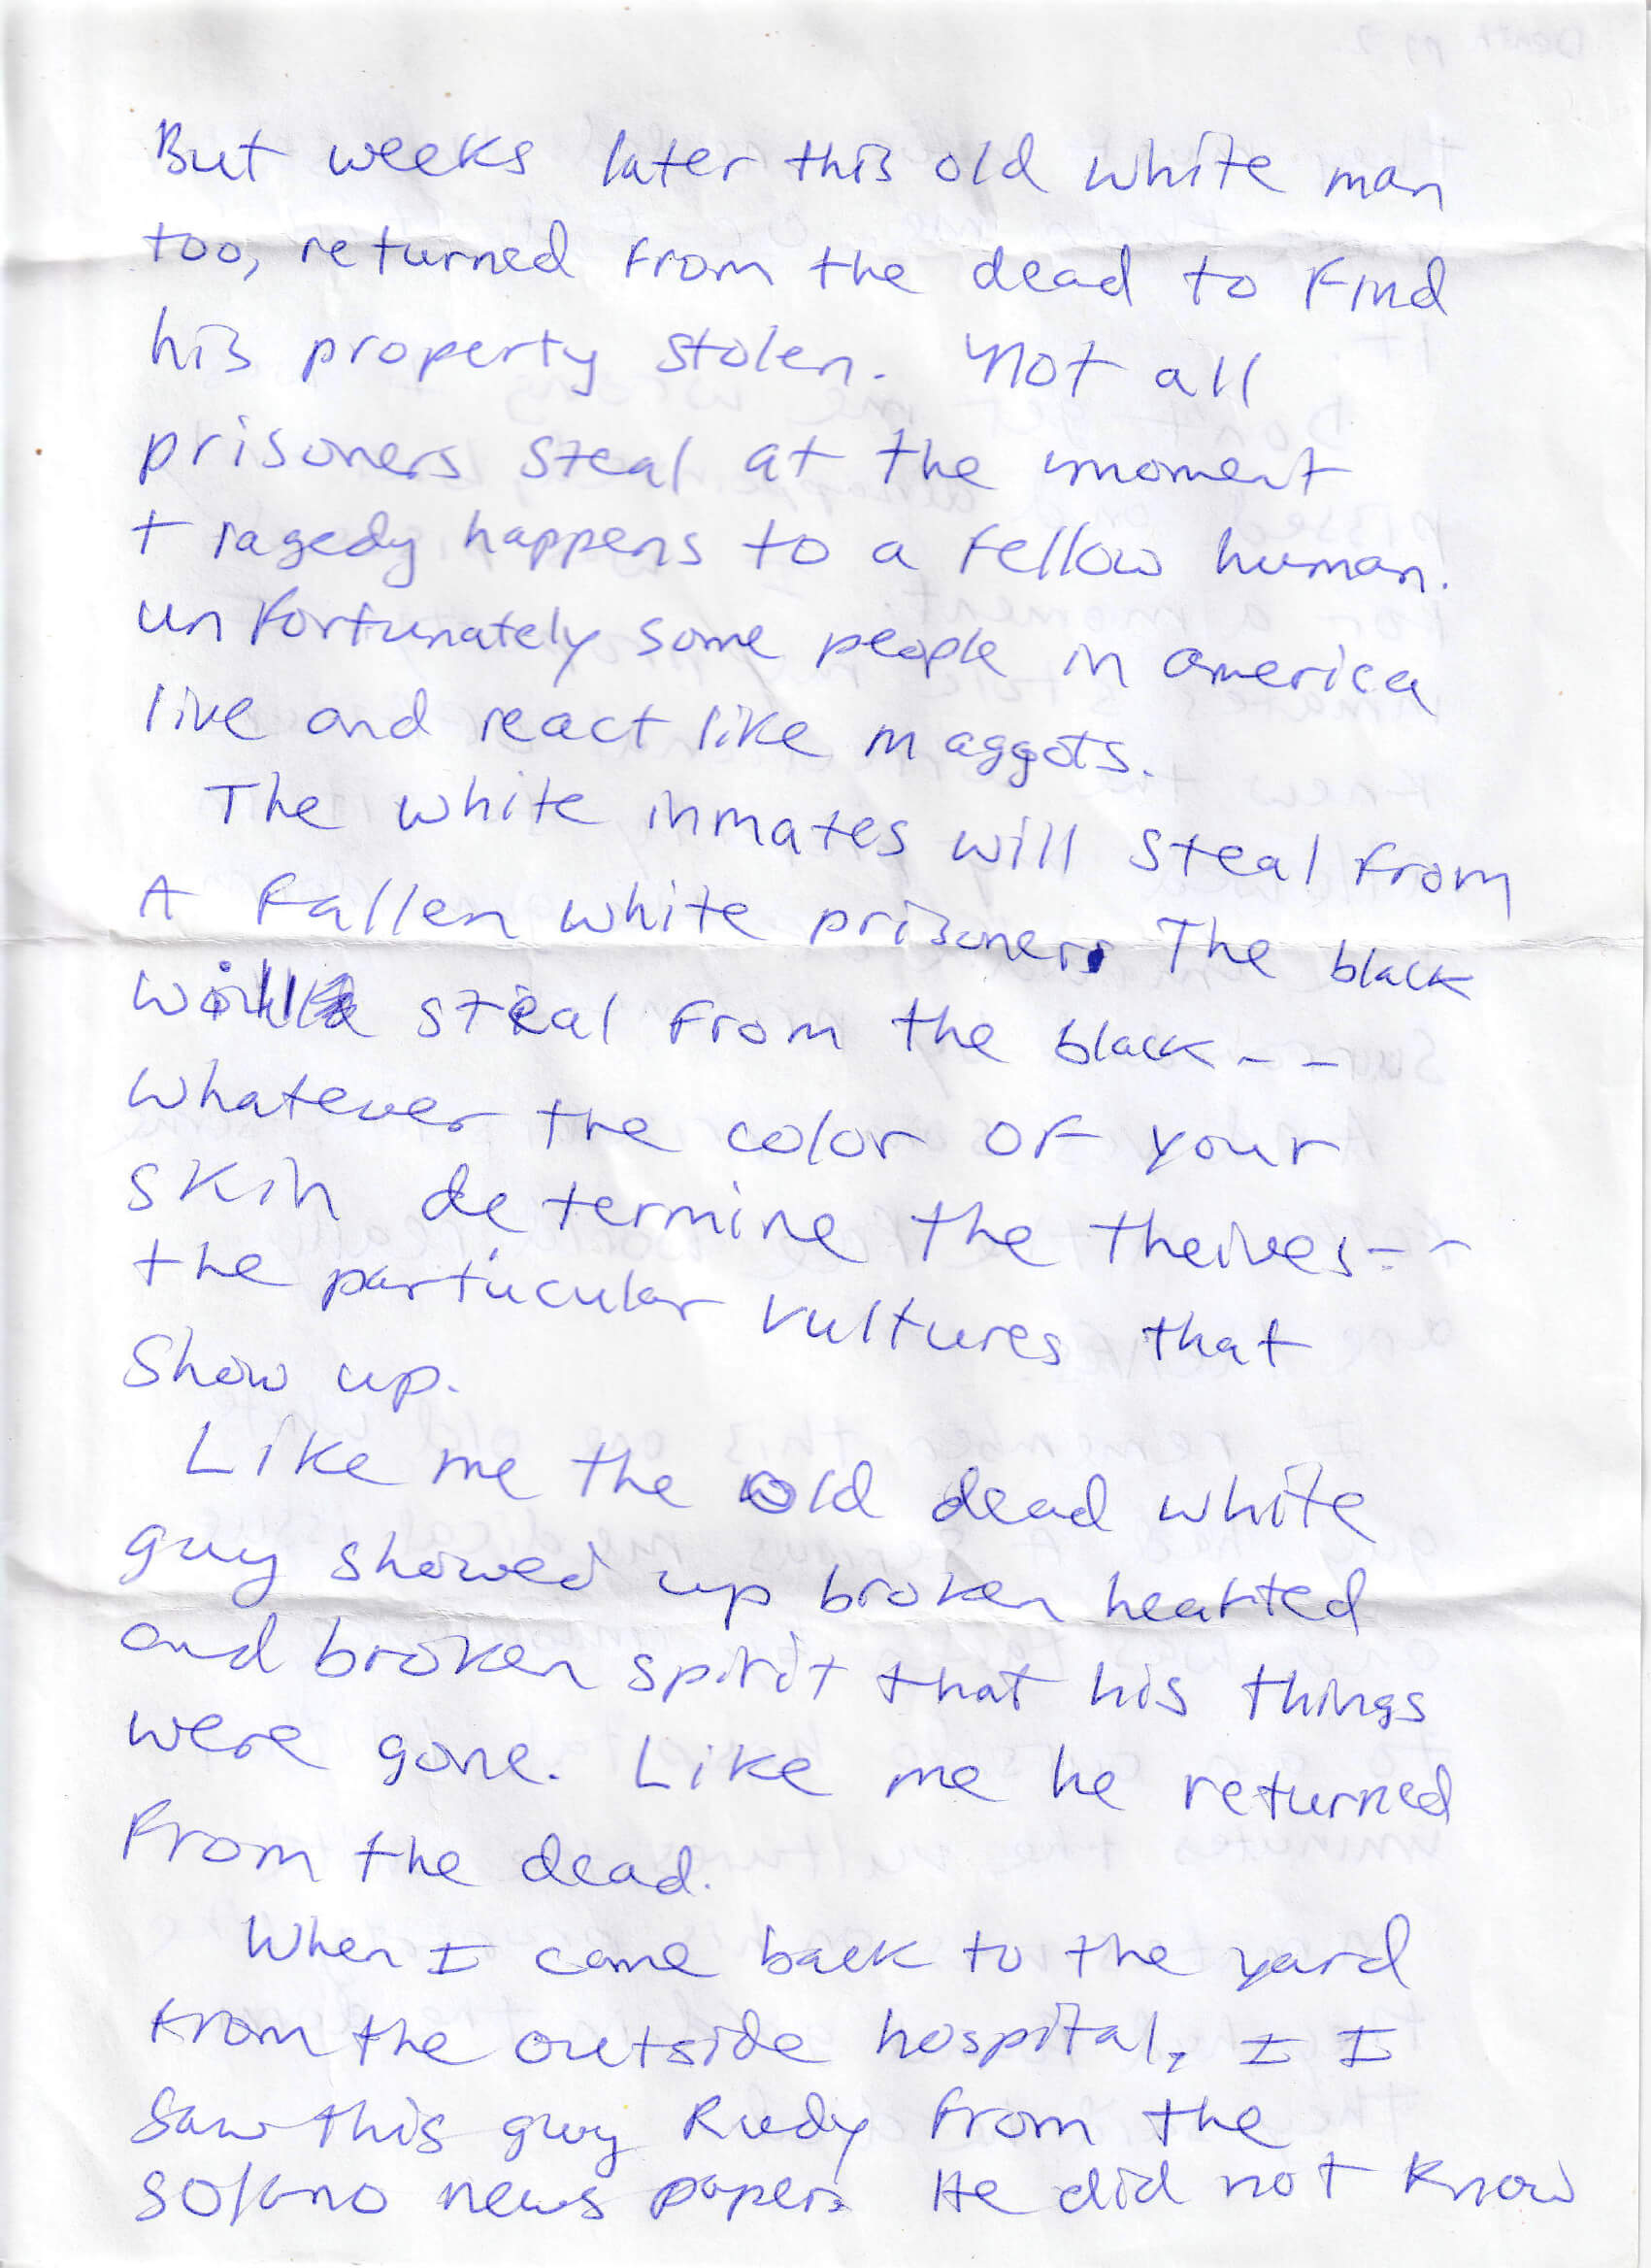 But weeks later this old white man
too, returned from the dead to find
his property stolen. Not all
prisoners steal at the moment
tragedy happens to a fellow human.
unfortunately some people in america
live and react like maggots.
The white inmates will steal from
A fallen white prisoner. The black
will steal from the black--
whatever the color of your
skin determine the theives--
the particular vultures that
show up.
Like me the old dead white
guy showed up broken hearted
and broken spirit that his things
were gone. Like me he returned
from the dead.
When I came back to the yard
from the outside hospital, I I
saw this guy Rudy from the
solano news paper. He did not know